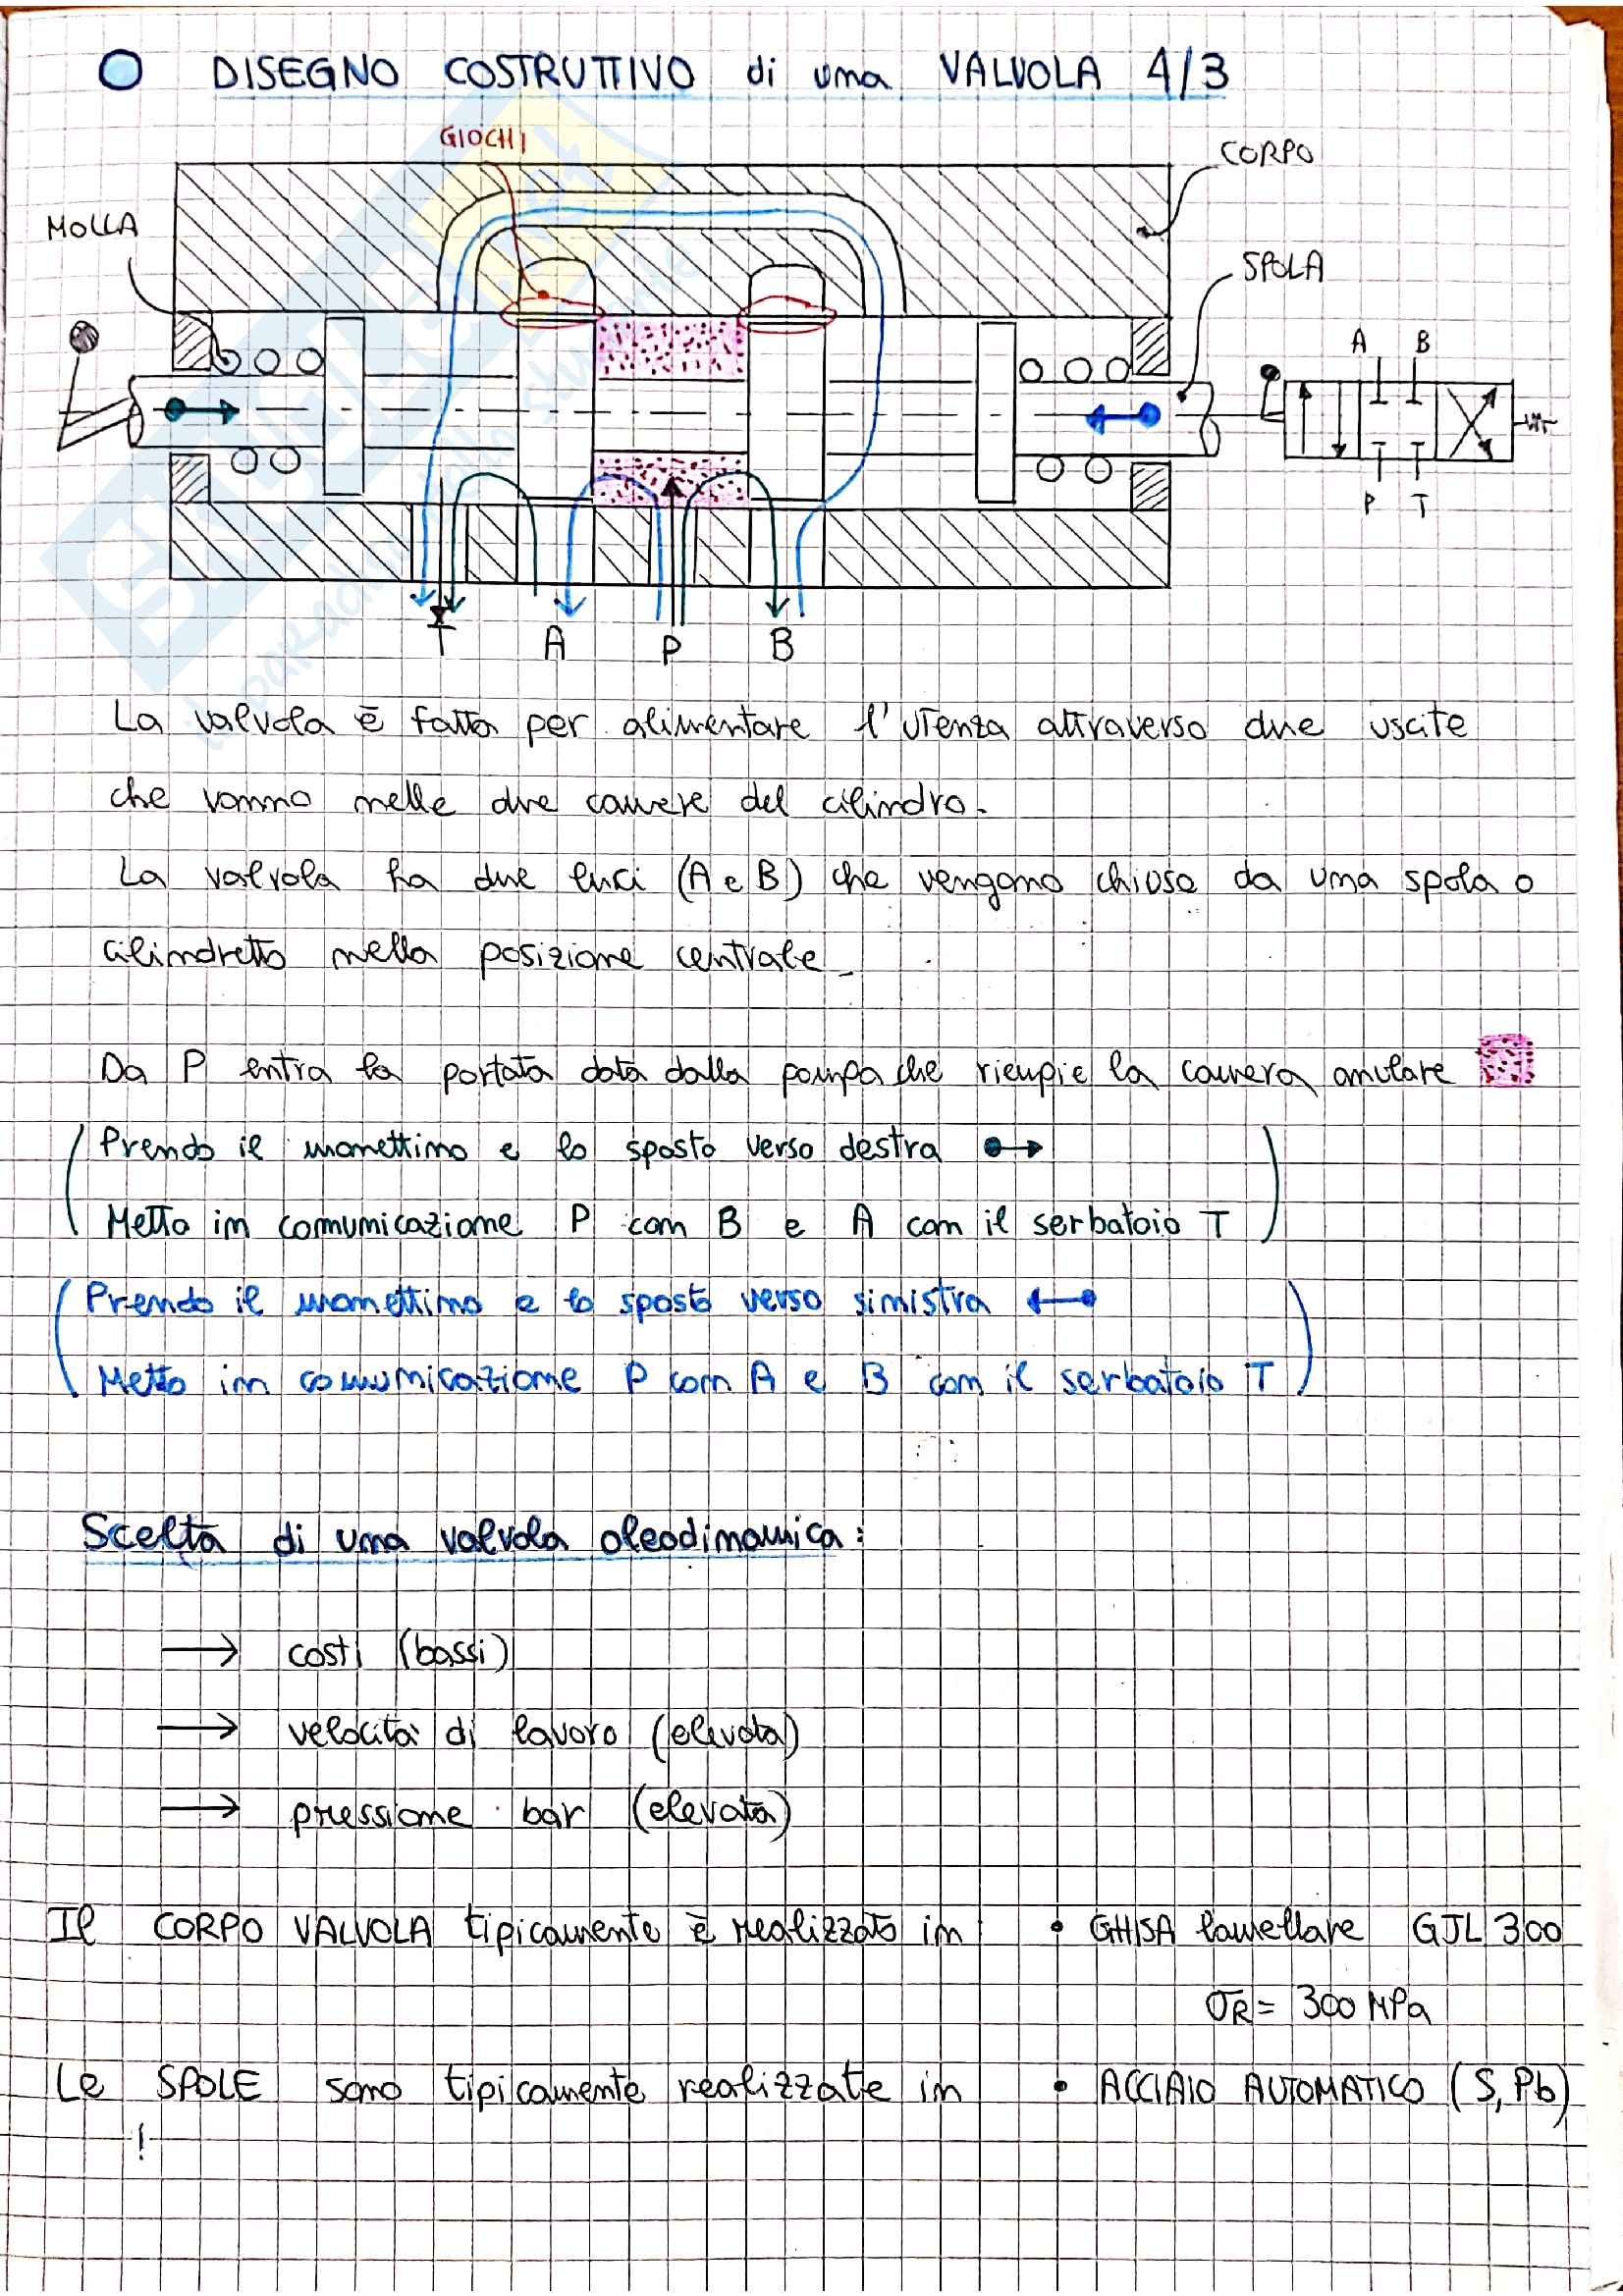 DISEGNO COSTRUTTIVO di una VALVOLA 4/3
GIOCHI
CORPO
MOLLA
SPOLA
A B
P T
T A P B
La valvola è fatta per alimentare l'utenza attraverso due uscite
che vanno nelle due camere del cilindro.
La valvola ha due luci (A e B) che vengono chiuse da una spola o
cilindretto nella posizione centrale.
Da P entra la portata data dalla pompa che riempie la camera anulare
Prendo il manettino e lo sposto verso destra
Metto in comunicazione P con B e A con il serbatoio T
Prendo il manettino e lo sposto verso sinistra
Metto in comunicazione P con A e B con il serbatoio T
Scelta di una valvola oleodinamica:
→ costi (bassi)
→ velocità di lavoro (elevata)
→ pressione bar (elevata)
Il CORPO VALVOLA tipicamente è realizzato in • GHISA lamellare GJL 300
σR = 300 MPa
Le SPOLE sono tipicamente realizzate in • ACCIAIO AUTOMATICO (S, Pb)